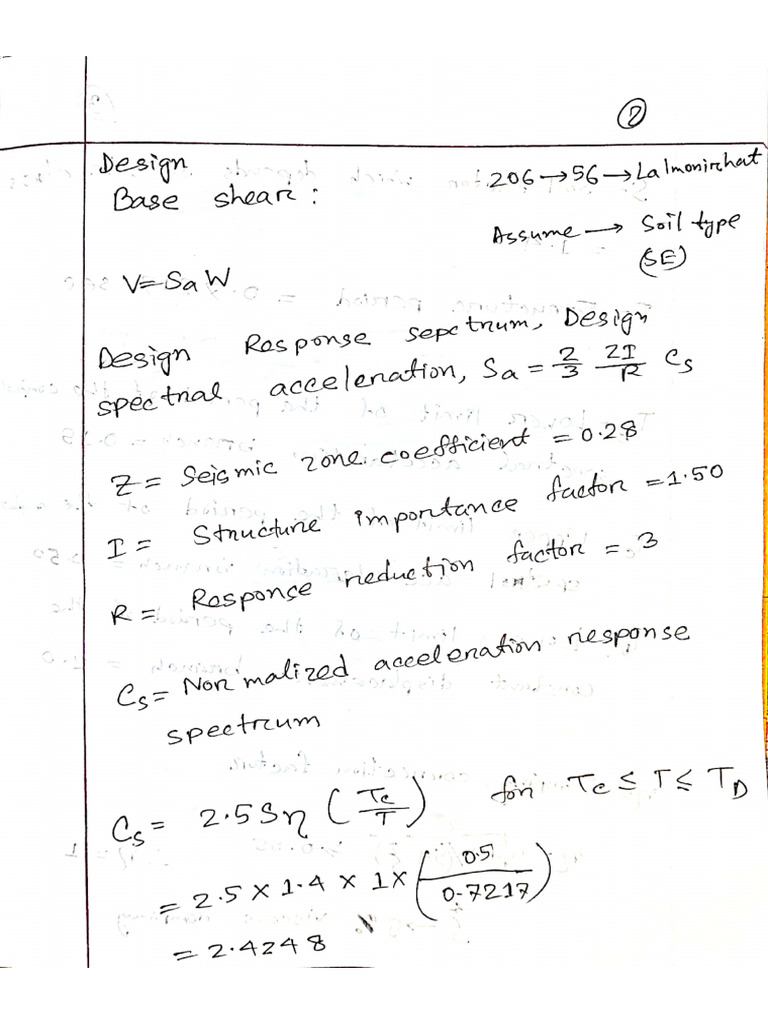 2
Design
Base shear:
206→56→Lalmonirhat
Assume → Soil type
(SE)
V=SaW
Design Response sepctrum, Design
spectral acceleration, Sa = 2/3 ZI/R Cs
Z = Seismic zone coefficient = 0.28
I = Structure importance factor = 1.50
R = Response reduction factor = 3
Cs = Normalized acceleration response
spectrum
Cs = 2.5Sη (Tc/T) for Tc ≤ T ≤ TD
= 2.5 × 1.4 × 1× (0.5/0.7217)
= 2.4248